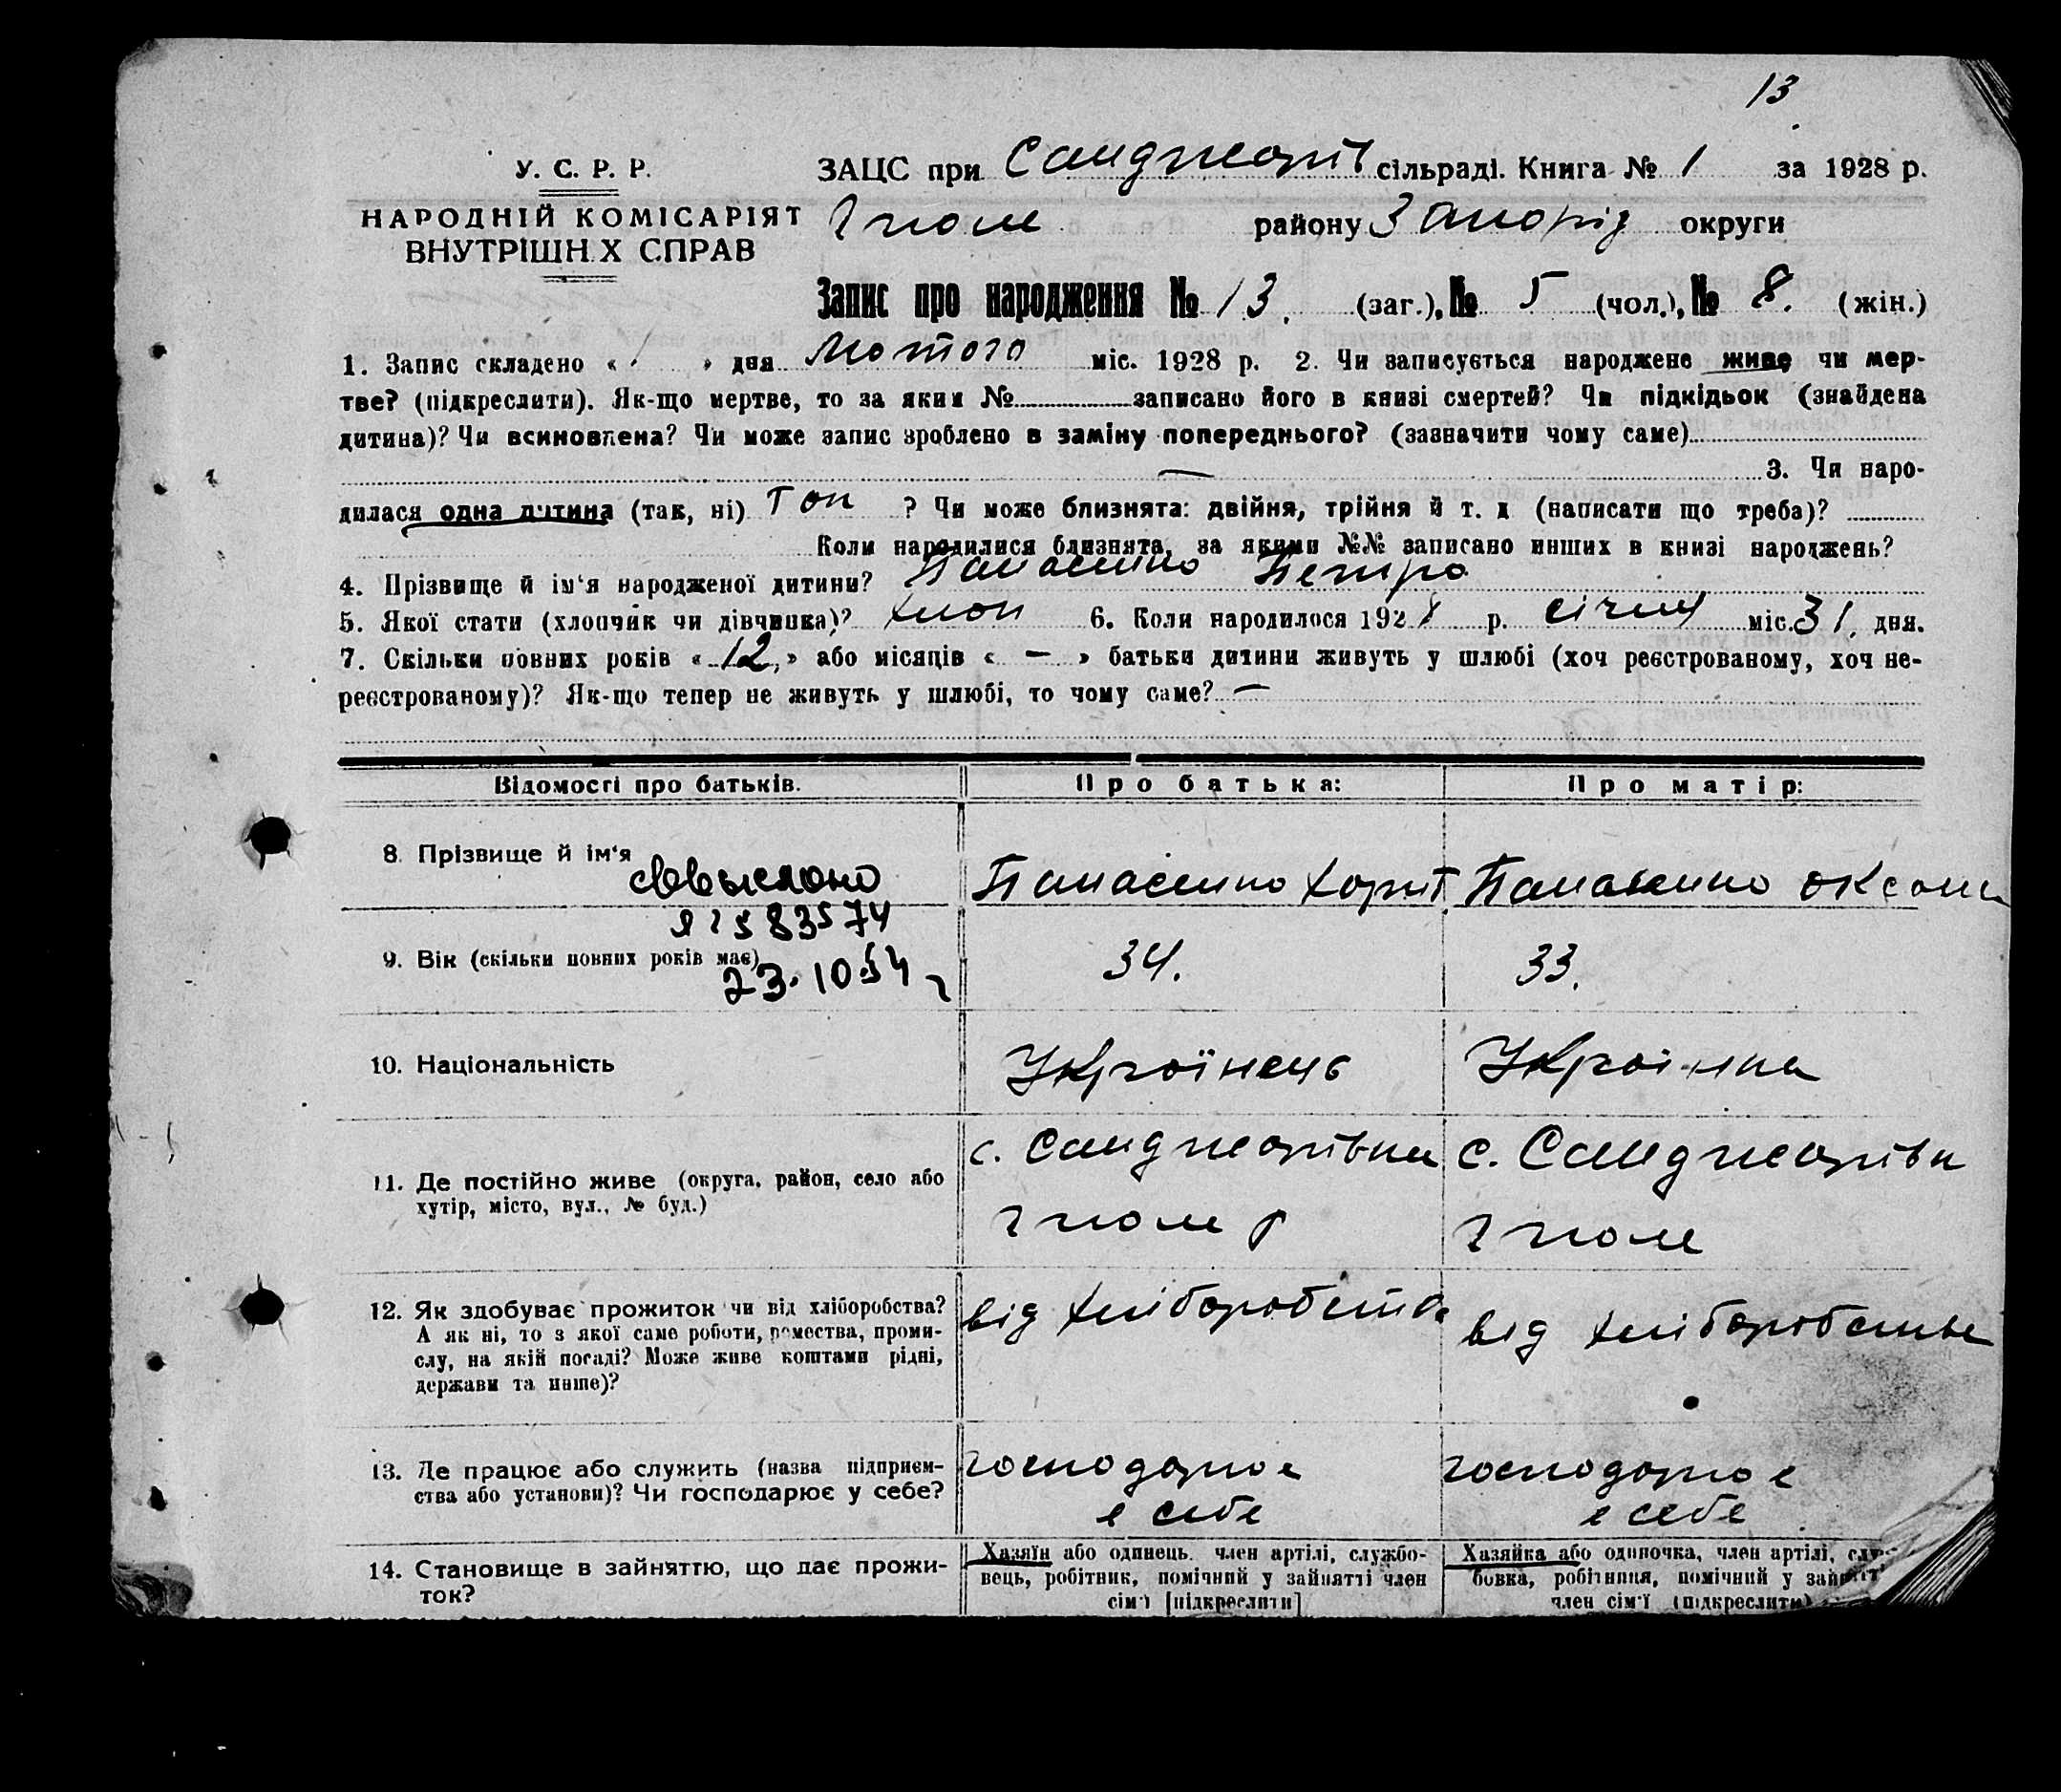 13
У. С. Р. Р.
НАРОДНІЙ КОМІСАРІЯТ
ВНУТРІШН.Х СПРАВ
ЗАЦС при Санджарів сільраді. Книга № 1 за 1928 р.
Гполе району Запоріз округи
Запис про народження № 13. (заг.), № 5 (чол.), № 8. (жін.)
1. Запис складено « » дня Лютого міс. 1928 р. 2. Чи записується народжене живе чи мер-
тве? (підкреслити). Як-що мертве, то за яким № записано його в книзі смертей? Чи підкідьок (знайдена
дитина)? Чи всиновлена? Чи може запис зроблено в заміну попереднього? (зазначити чому саме)
— 3. Чи наро-
дилася одна дитина (так, ні) ? Чи може близнята: двійня, трійня й т. д (написати що треба)?
Коли народилися близнята, за якими №№ записано инших в книзі народжень?
4. Прізвище й ім'я народженої дитини? Панасенко Петро
5. Якої стати (хлопчик чи дівчинка)? хлоп 6. Коли народилося 1928 р. січня міс. 31. дня.
7. Скільки повних років « 12 » або місяців « — » батьки дитини живуть у шлюбі (хоч реєстрованому, хоч не-
реєстрованому)? Як-що тепер не живуть у шлюбі, то чому саме? —
Відомості про батьків. Про батька: Про матір:
8. Прізвище й ім'я Панасенко Харит. Панасенко Оксана
583574
9. Вік (скільки повних років має) 34. 33.
23.10.54 г
10. Національність Українець Українка
11. Де постійно живе (округа, район, село або
хутір, місто, вул., № буд.)
с. Санджарівка с. Санджарівк
Гполе р Гполе
12. Як здобуває прожиток чи від хліборобства?
А як ні, то з якої саме роботи, ремества, проми-
слу, на якій посаді? Може живе коштами рідні,
держави та инше)?
від хліборобства від хліборобства
13. Де працює або служить (назва підприєм-
ства або установи)? Чи господарює у себе?
господарює господарює
в себе в себе
14. Становище в зайняттю, що дає прожи-
ток?
Хазяїн або одинець, член артілі, службо-
вець, робітник, помічний у зайнятті член
сім'ї [підкреслити]
Хазяйка або одиночка, член артілі, служ-
бовка, робітниця, помічний у зайнятт
член сім'ї (підкреслити)